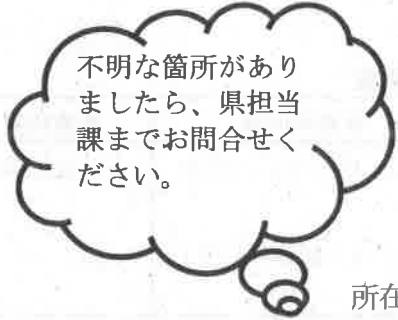 不明な箇所があり
ましたら、県担当
課までお問合せく
ださい。
所在